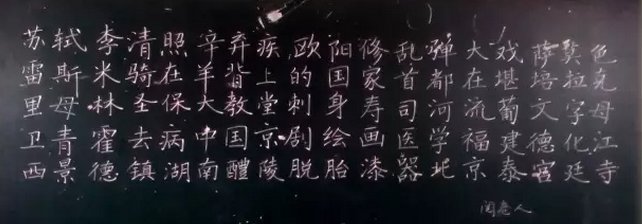 苏轼李清照辛弃疾欧阳修乱弹大戏萨色
雷斯米骑在羊背上的国家首都在堪培拉克
里母林圣保大教堂刺身寿司河流葡文字母
卫青霍去病中国京剧绘画医学福建德化江
西景德镇湖南醴陵脱胎漆器北京泰宫廷寺
阅卷人